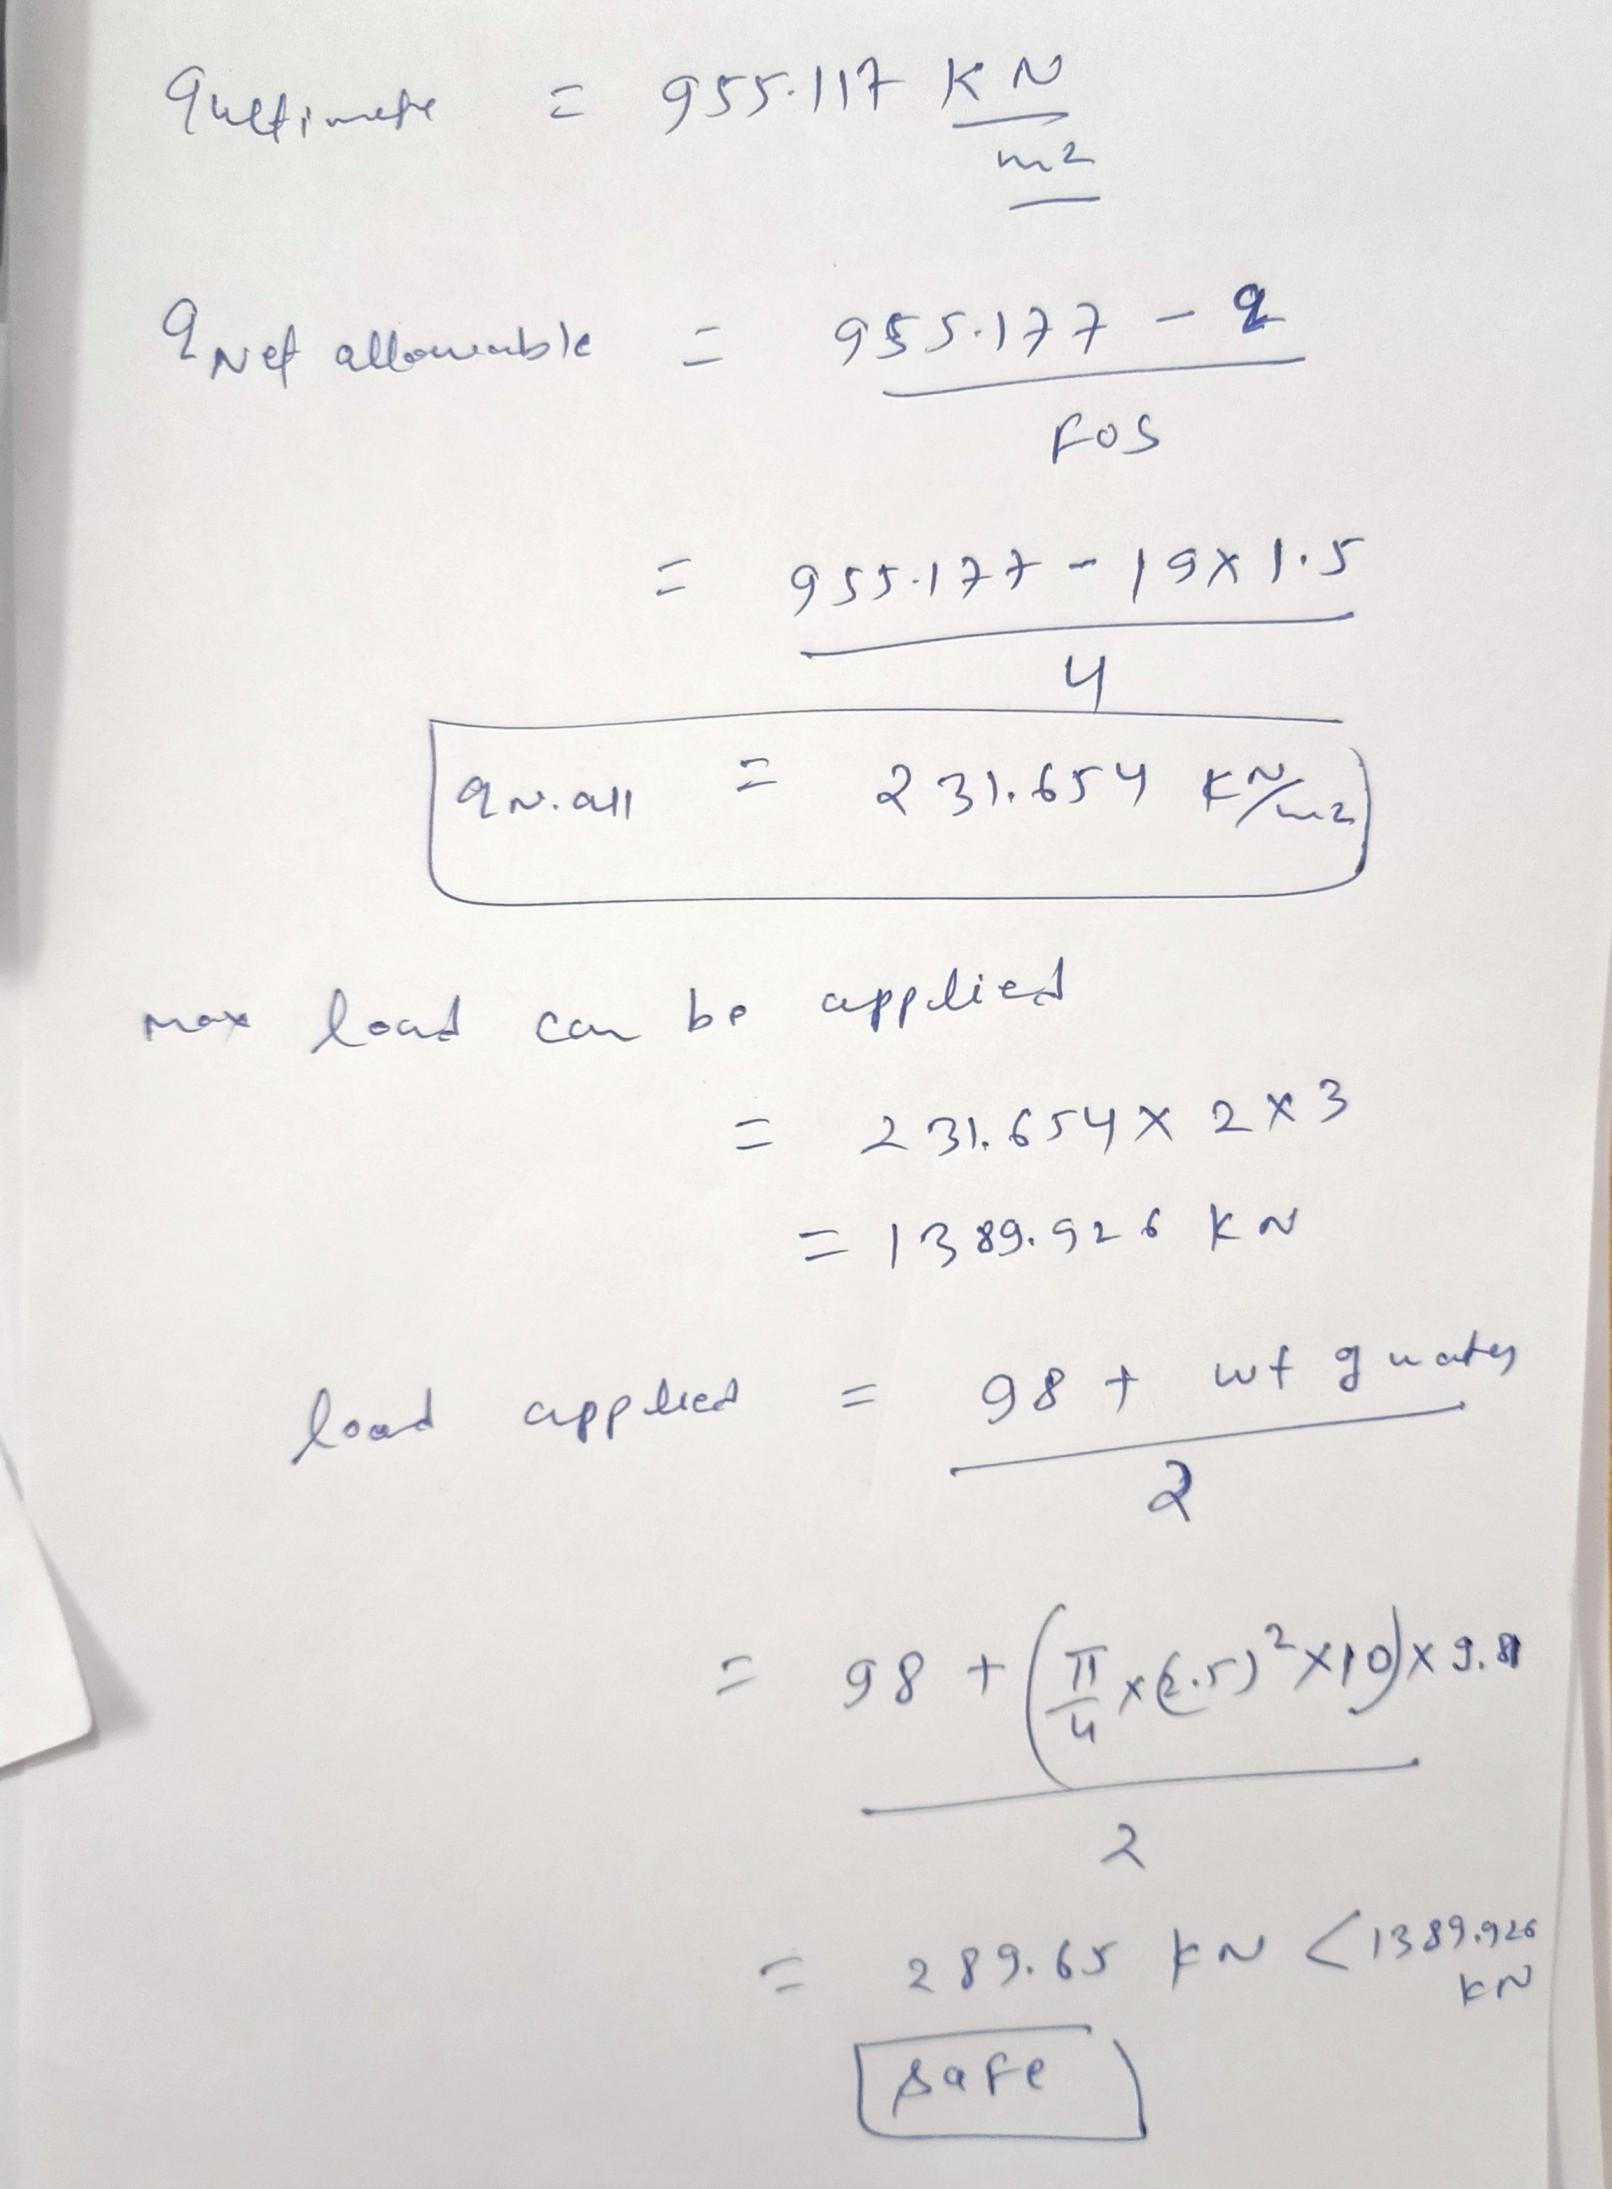 qultimate = 955.117 KN/m2
qNet allowable = 955.177 - q
FOS
= 955.177 - 19x1.5
4
qN.all = 231.654 KN/m2
max load can be applied
= 231.654 x 2 x 3
= 1389.926 KN
load applied = 98 + wt g water
2
= 98 + (π/4 x(2.5)²x10)x 9.81
2
= 289.65 KN < 1389.926 KN
safe